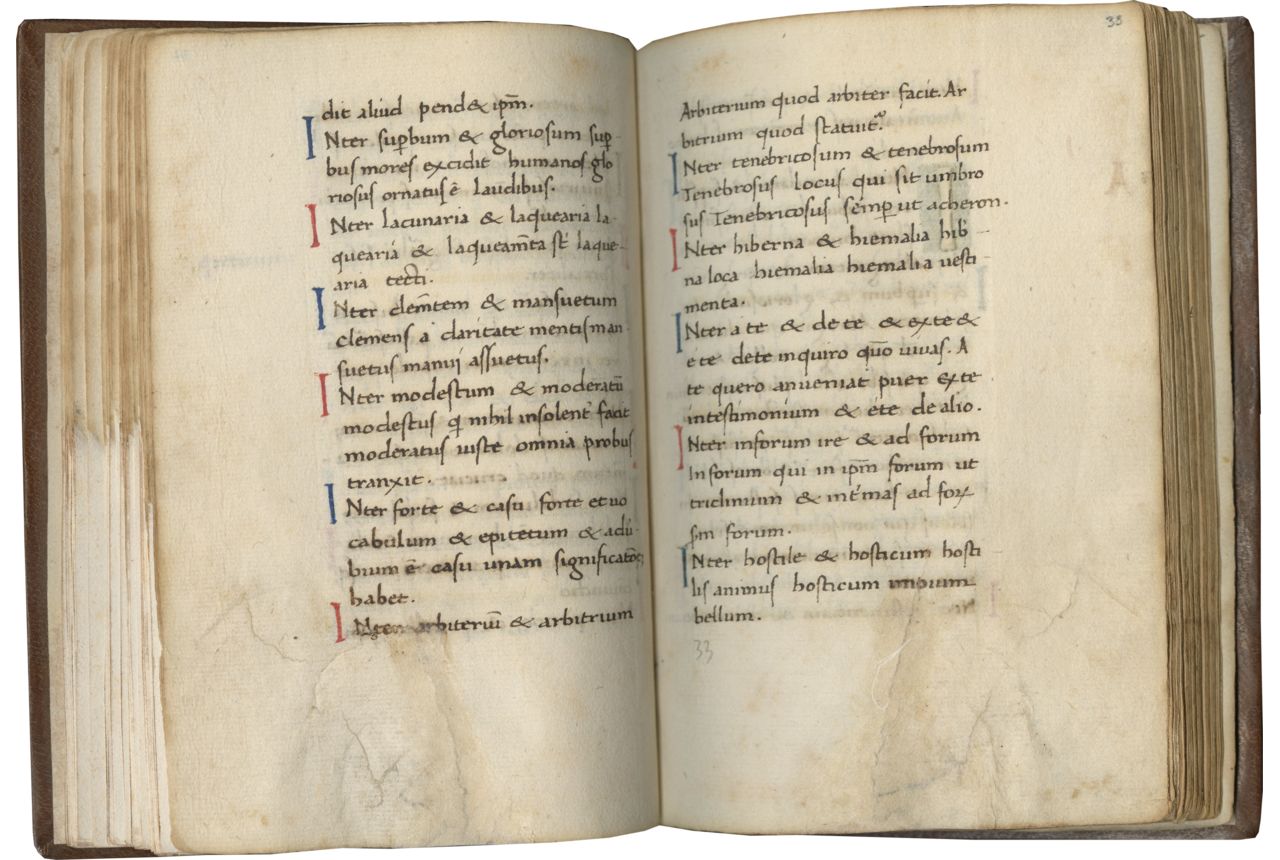 dit aliud pend& ipm̄.
INter sup̄bum & gloriosum sup̄
bus mores excidit humanos glo
riosus ornatus ē laudibus.
INter lacunaria & laquearia la-
quearia & laqueam̄ta st̄ laque-
aria tecti.
INter clem̄tem & mansuetum
clemens a claritate mentis man
suetus manui assuetus.
INter modestum & moderatū
modestus qi nihil insolent̄ facit
moderatus iuste omnia probus
tranxit.
INter forte & casu forte et uo
cabulum & epitetum & adu-
bium ē casu unam significatōē
habet.
INter arbiteriū & arbitrium
33
Arbiterium quod arbiter facit. Ar
bitrium quod statuit.
INter tenebricosum & tenebrosum
Tenebrosus locus qui sit umbro
sus Tenebricosus semp̄ ut acheron.
INter hiberna & hiemalia hib̄
na loca hiemalia hiemalia uesti-
menta.
INter a te & de te & ex te &
e te de te inquiro quō uiuas. A
te quero an ueniat puer ex te
in testimonium & e te de alio.
INter inforum ire & ad forum
Inforum qui in ipm̄ forum ut
triclinium & int̄mas ad foꝝ
sm̄ forum.
INter hostile & hosticum hosti
lis animus hosticum
bellum.
33